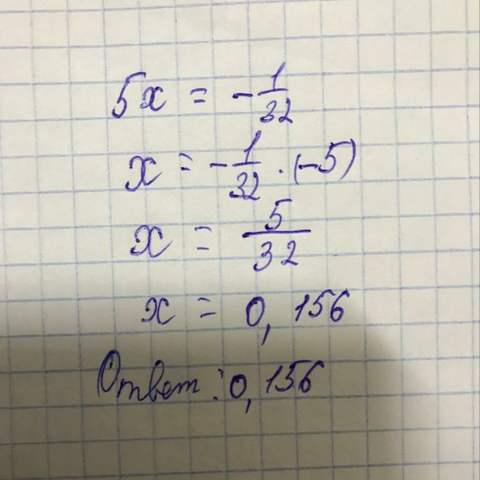 5x = -1/32
x = -1/32 · (-5)
x = 5/32
x = 0,156
Ответ: 0,156